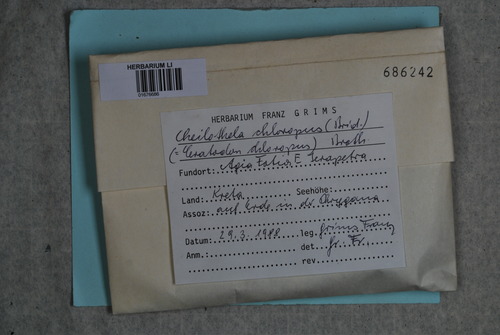 HERBARIUM LI
686242
HERBARIUM FRANZ GRIMS
Cheilothela chloropus (Brid.)
(= Ceratodon chloropus) Broth.
Fundort: Agia Fotia E Ierapetra
Land: Kreta Seehöhe:
Assoz: auf Erde in der Phrygana
Datum: 29.3.1988 leg. Grims Franz
Anm.: det. Gr. Fr.
rev.